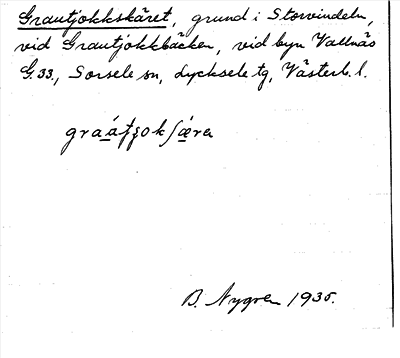 Grautjokkskäret, grund i Storvindeln,
vid Grautjokkbäcken, vid byn Vallnäs
G.33., Sorsele sn, Lycksele tg, Västerb. l.
B. Nygren 1935.